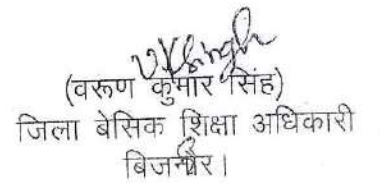 VKSingh
(वरूण कुमार सिंह)
जिला बेसिक शिक्षा अधिकारी
बिजनौर।